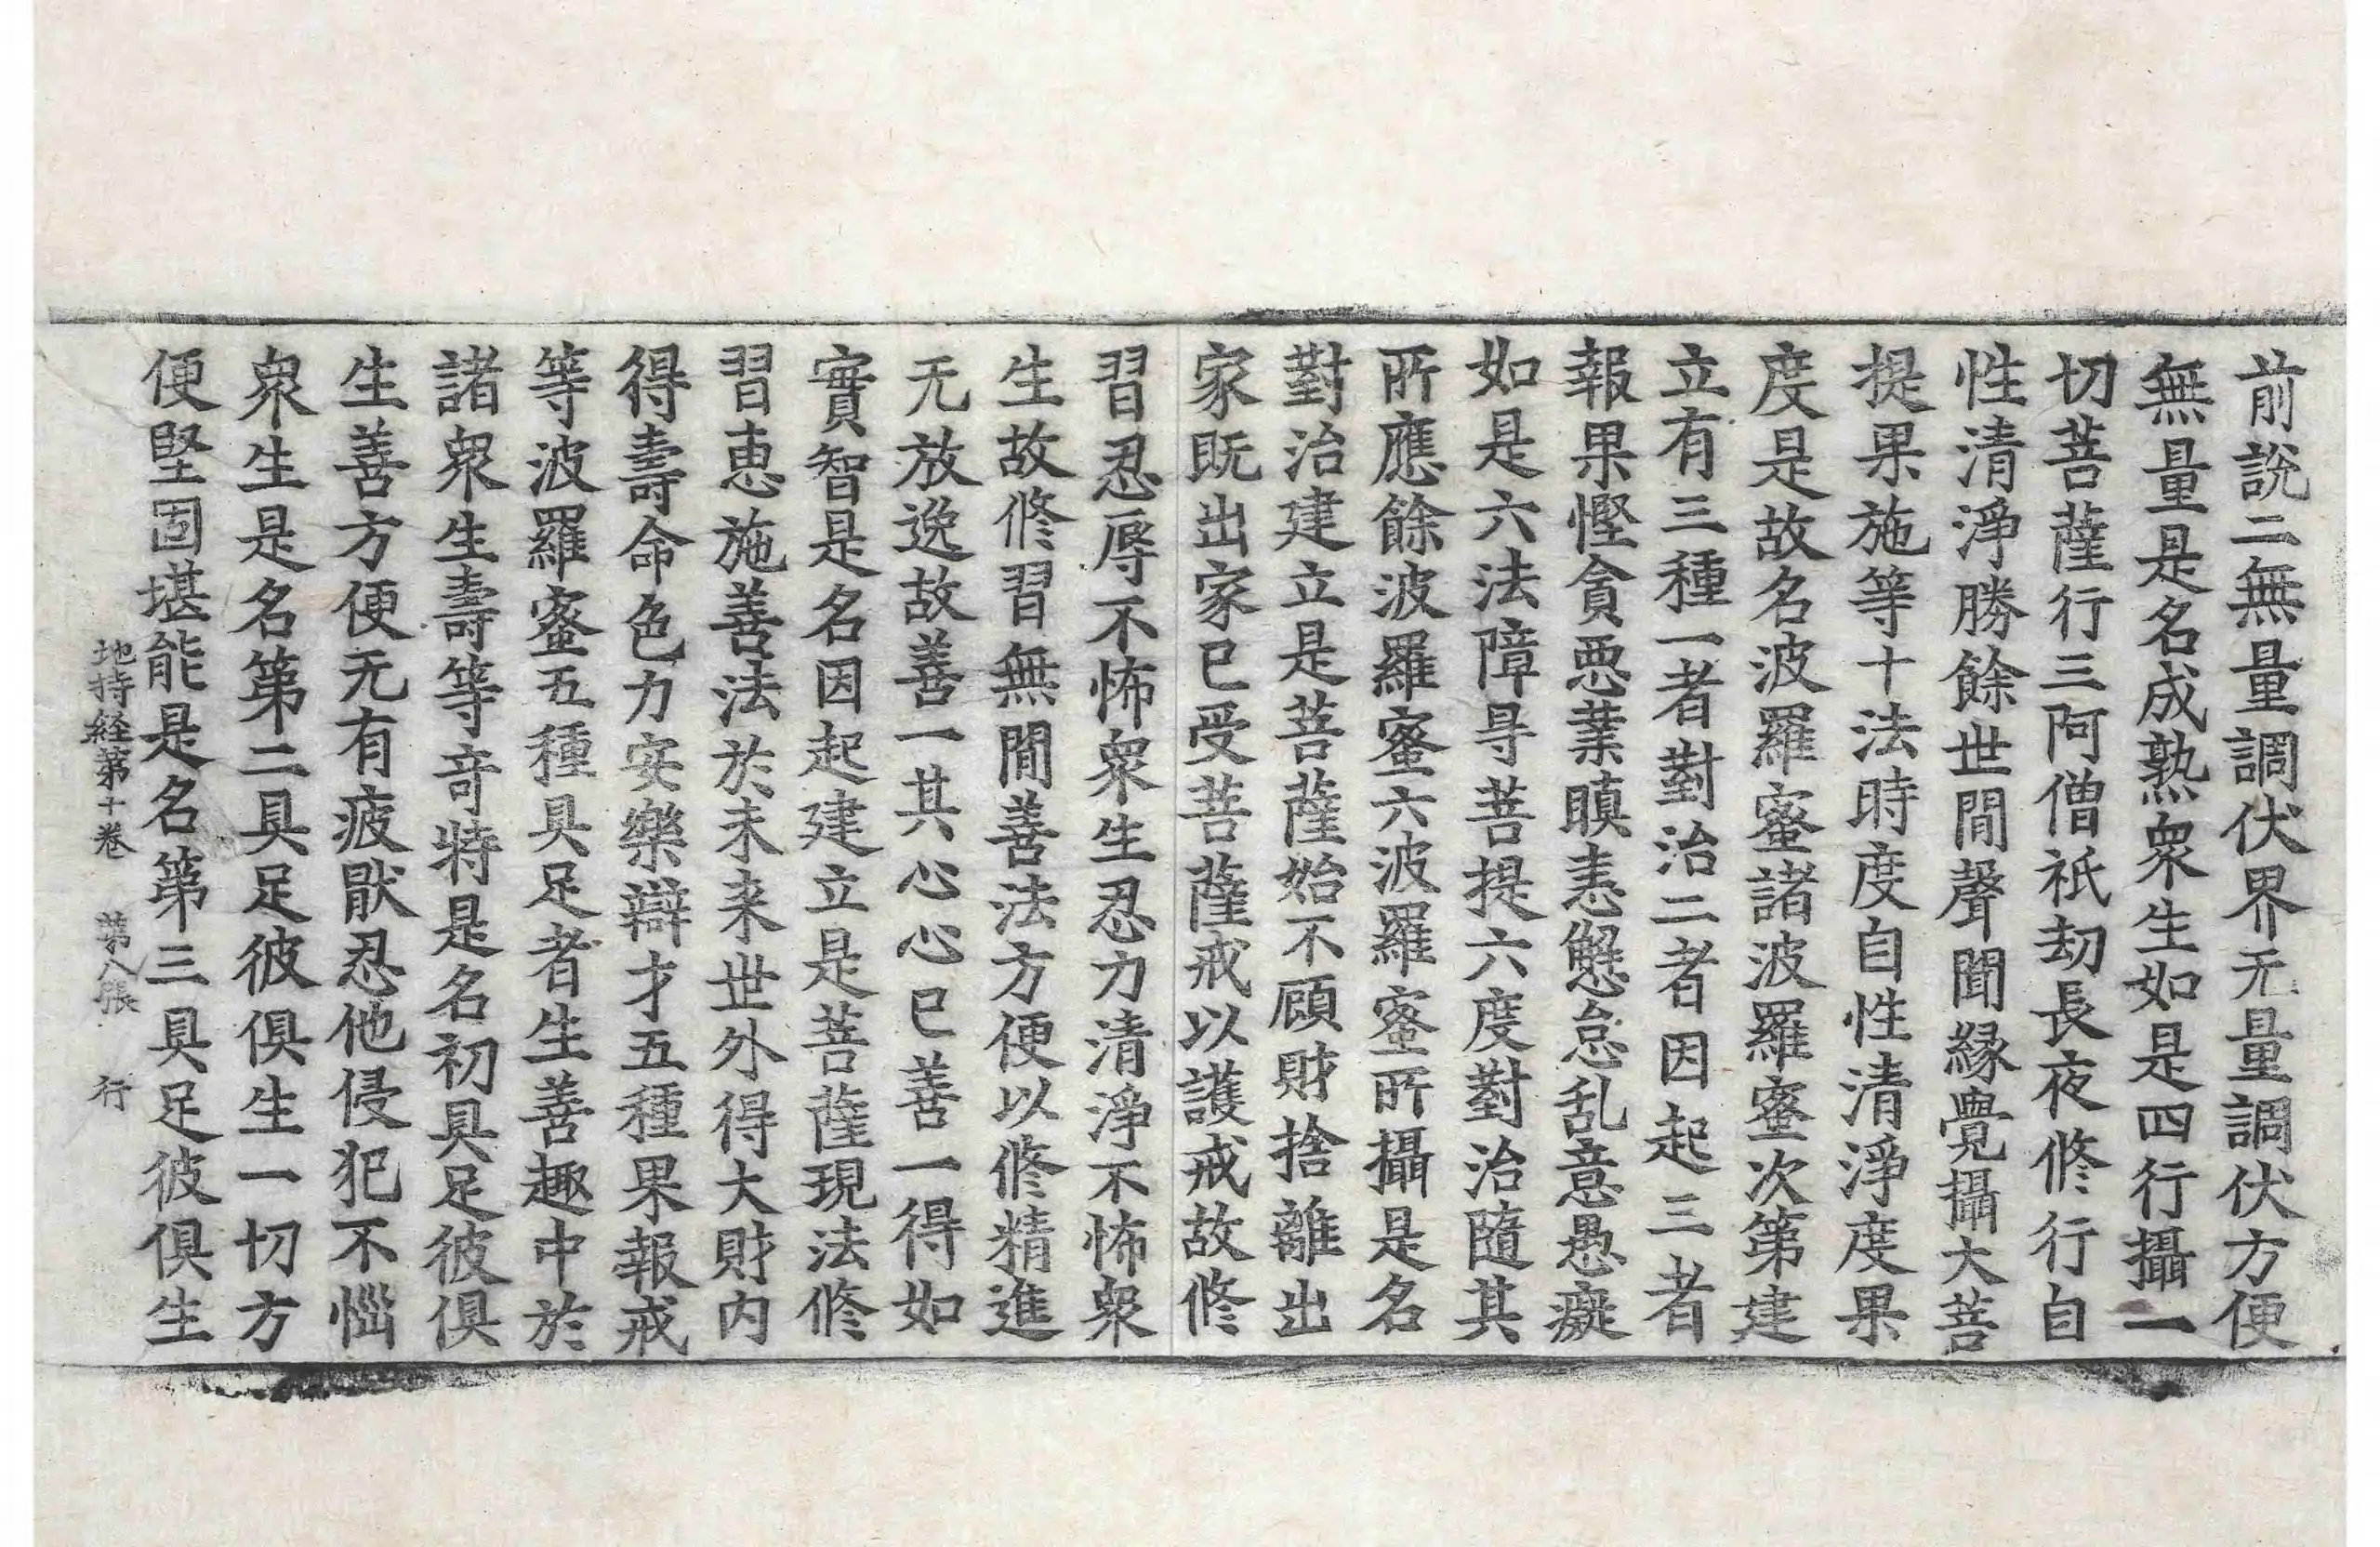 前説二無量調伏界无量調伏方便
無量是名成熟衆生如是四行攝一
切菩薩行三阿僧祇劫長夜修行自
性清淨勝餘世間聲聞縁覺攝大菩
提果施等十法時度自性清淨度果
度是故名波羅蜜諸波羅蜜次第建
立有三種一者對治二者因起三者
報果慳貪悪業瞋恚懈怠乱意愚癡
如是六法障㝵菩提六度對治隨其
所應餘波羅蜜六波羅蜜所攝是名
對治建立是菩薩始不顧財捨離出
家既出家已受菩薩戒以護戒故修
習忍辱不怖衆生忍力清淨不怖衆
生故修習無間善法方便以修精進
无放逸故善一其心心已善一得如
實智是名因起建立是菩薩現法修
習恵施善法於未来世外得大財内
得壽命色力安樂辯才五種果報戒
等波羅蜜五種具足者生善趣中於
諸衆生壽等竒特是名初具足彼俱
生善方便无有疲猒忍他侵犯不惱
衆生是名第二具足彼俱生一切方
便堅固堪能是名第三具足彼俱生
地持経第十巻 第八張 行